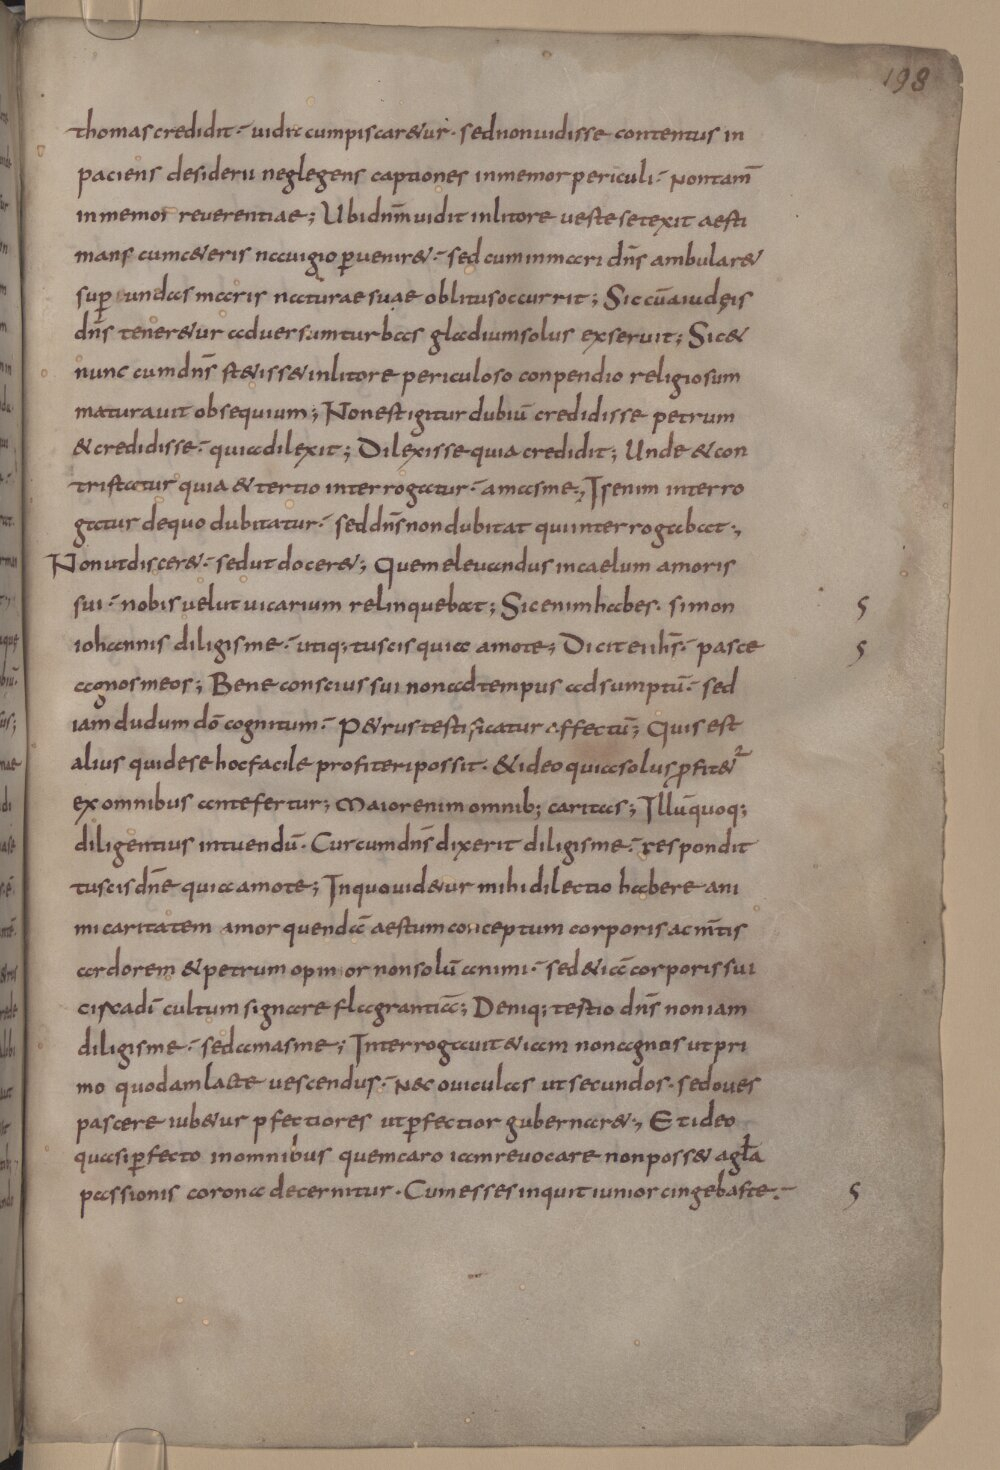 198
thomas credidit· uidit cum piscar&ur· sed non uidisse contentus in
paciens desiderii neglegens captiones inmemor periculi· Non tam̄
inmemor reverentiae; Ubi dnm̄ uidit in litore ueste se texit aesti
mans cum c&eris nauigio ꝑuenir&· sed cum in mari dn̄s ambular&
suꝑ undas maris naturae suae oblitus occurrit; Sic cū a iudęis
dn̄s tener&ur aduersum turbas gladium solus exseruit; Sic &
nunc cum dn̄s st&iss& in litore periculoso conpendio religiosum
maturauit obsequium; Non est igitur dubiū credidisse petrum
& credidisse· quia dilexit; Dilexisse quia credidit; Unde & con
tristatur quia & tertio interrogatur· amas me; Is enim interro
gatur de quo dubitatur· sed dn̄s non dubitat qui interrogabat;
Non ut discer&· sed ut docer&; Quem eleuandus in caelum amoris
sui· nobis uelut uicarium relinquebat; Sic enim habes· simon
iohannis diligis me· utiq; tu scis quia amo te; Dicit ei ihs̄· pasce
agnos meos; Bene conscius sui non ad tempus adsumptū· sed
iam dudum dō cognitum· P&rus testificatur affectū; Quis est
alius qui de se hoc facile profiteri possit· & ideo quia solus ꝓfit&ur
ex omnibus antefertur; Maior enim omnib; caritas; Illū quoq;
diligentius intuendū· Cur cum dn̄s dixerit diligis me· respondit
tu scis dn̄e quia amo te; In quo uid&ur mihi dilectio habere ani
mi caritatem amor quendā aestum conceptum corporis ac m̄tis
ardorem & petrum opinor non solū animi· sed & iā corporis sui
circa dī cultum signare flagrantiā; Deniq; testio dn̄s non iam
diligis me· sed amas me; Interrogauit & iam non agnos ut pri
mo quodam lacte uescendus· Nec ouiculas ut secundos· sed oues
pascere iub&ur ꝑfectiores ut ꝑfectior gubernar&; Et ideo
quasi ꝑfecto in omnibus quem caro iam reuocare non poss& a gła
passionis corona decernitur· Cum esses inquit iunior cingebas te·